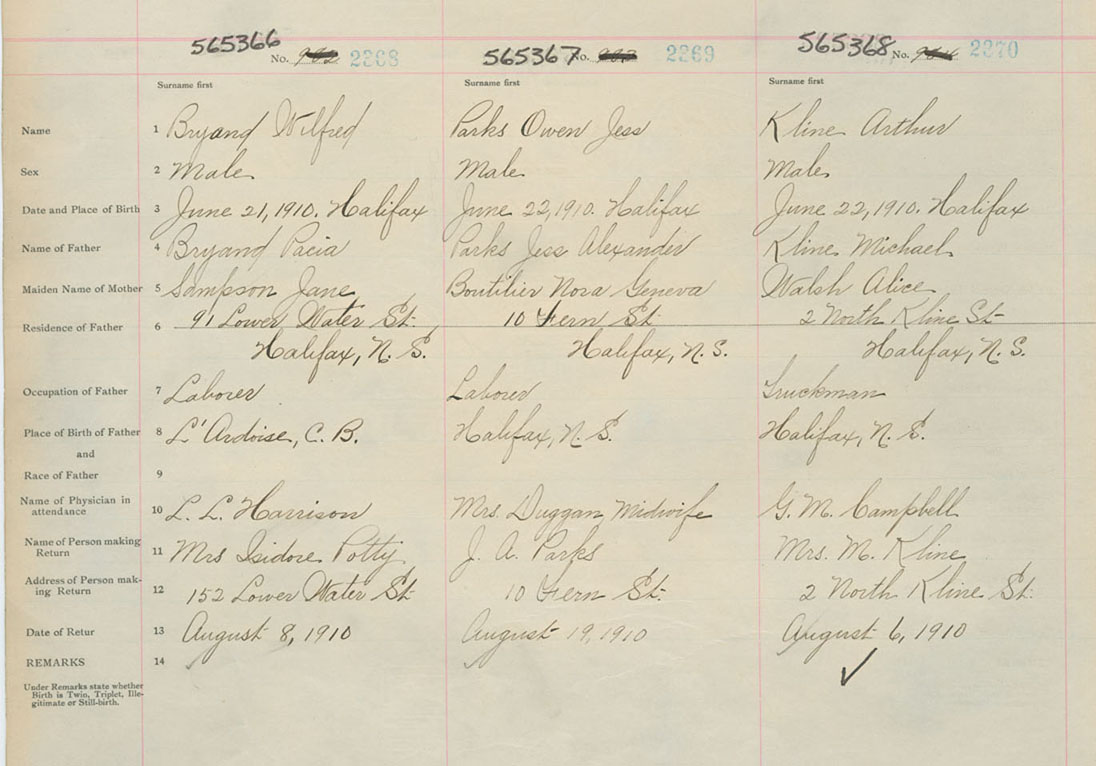 565366 No. 2368 565367 No. 2369 565368 No. 2370
Surname first Surname first Surname first
Name 1 Bryand Wilfred Parks Owen Jess Kline Arthur
Sex 2 Male Male Male
Date and Place of Birth 3 June 21, 1910. Halifax June 22, 1910. Halifax June 22, 1910. Halifax
Name of Father 4 Bryand Pacia Parks Jess Alexander Kline Michael
Maiden Name of Mother 5 Sampson Jane Boutilier Nora Geneva Walsh Alice
Residence of Father 6 91 Lower Water St. 10 Fern St. 2 North Kline St
Halifax, N. S. Halifax, N. S. Halifax, N. S.
Occupation of Father 7 Laborer Laborer Truckman
Place of Birth of Father 8 L'Ardoise, C. B. Halifax, N. S. Halifax, N. S.
and
Race of Father 9
Name of Physician in
attendance 10 L. L. Harrison Mrs. Duggan Midwife G. M. Campbell
Name of Person making
Return 11 Mrs Isidore Potty J. A. Parks Mrs. M. Kline
Address of Person mak-
ing Return 12 152 Lower Water St. 10 Fern St. 2 North Kline St.
Date of Retur 13 August 8, 1910 August 19, 1910 August 6, 1910
REMARKS 14
Under Remarks state whether
Birth is Twin, Triplet, Ille-
gitimate or Still-birth.